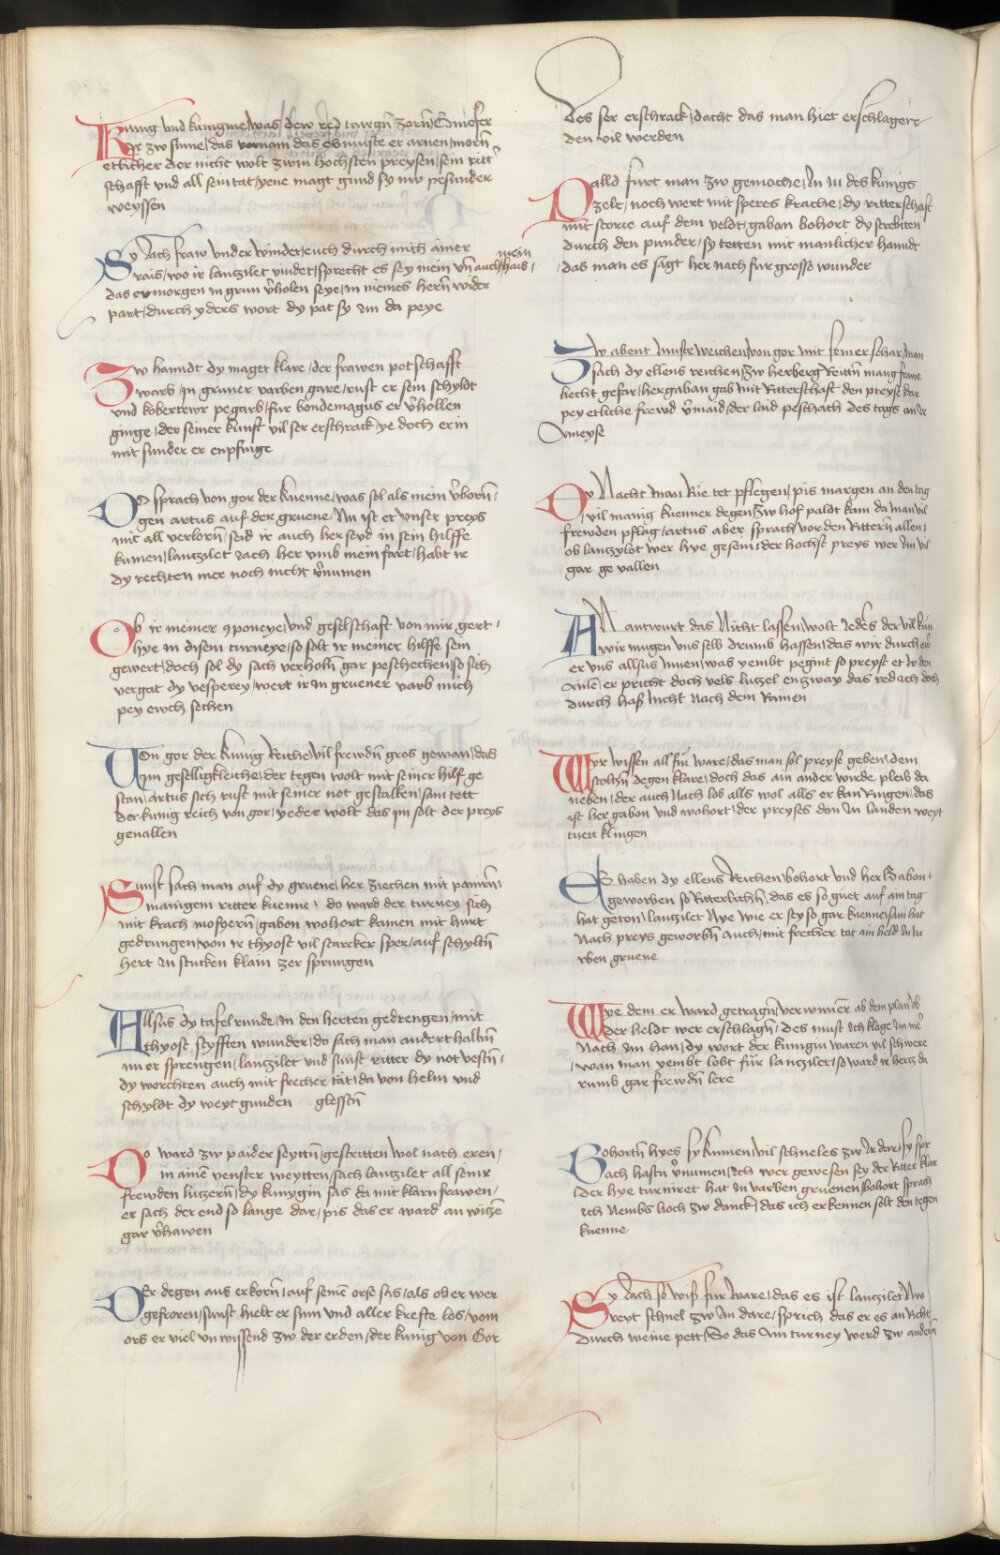 Kunig vnd kunigine was dew red tawgn̄ zorn̄
Er zw sinne das vernam das es muste er arnen morn̄
etlicher der nicht wolt zwm hochsten preysen sein ritt
schafft vnd all sein tat yene magt gund sy im pesunder
weyssen
Sy sach fraw vnder winder euch durch mich ainer
rais wo ir lanczilet vindet sprecht es sey mein vn̄ auch
mein
das er morgen in grun v̄holen seye in meines hern̄ wider
part durch yders wort dy pat sy im da peye
Zw hanndt dy maget klare der frawen potschafft
warb in gruner varben gare rust er sein schyldt
vnd kobertewr pegarb fur bondemagus er v̄hollen
ginge der seiner kunst vil ser erschrack ye doch er in
mit sunder er enpfinge
Do sprach von gor der kuenne was sol als mein v̄born̄
gen artus auf der gruene nu ist er vnser preys
mit all verlorn̄ seid ir auch her seyd in sein hilffe
kumen lanczilet nach her vmb mein fart habt ir
dy rechten mer noch nicht v̄numen
Ob ir meiner conponeye vnd geselschaft von mir gert
hye in disem turneye so solt ir meiner hilffe sein
gewert doch sol dy sach verholn̄ gar peschechen so sich
vergat dy vesperey wert ir in gruener varb mich
pey ewch sechen
Von gor der kunig reiche vil frewdn̄ gros gewan das
im geselligkleiche der tegen wolt mit seiner hilf ge
stan artus sich rust mit seiner not gestallen sam tett
der kunig reich von gor yeder wolt das im solt der preys
geuallen
Sunst sach man auf dy gruene her ziechen mit panirn̄
manigem ritter kuenne do ward der turney sich
mit krach mosyern̄ gabon wohort kamen mit hurt
gedrungen von ir thyost vil starcker sper auf schyltn̄
hert in stucken klain zer sprungen
Allsus dy tafel runde in den herten gedrengen mit
thyost styfften wunder do sach man andert haltn̄
nu er sprengen lanczilet vnd sunst ritter dy not vestn̄
dy worchten auch mit frecher tät da von helm vnd
schyldt dy weyt gunden glesstn̄
Do ward zw paider seyttn̄ gestritten wol nach eren
in ainē venster weytten sach lanczilet all seinr
frewden luczern̄ dy kunygin sas da mit klarn frawen
er sach der end so lange dar pis das er ward an wicze
gar v̄hawen
Der degen aus erkorn̄ auf seinē orse sas als ob er wer
gefroren sunst hielt er sunn vnd aller krefte los vom
ors er viel vnwissend zw der erden der kunig von Gor
des ser erschrack dacht das man hiet erschlagen
den vil werden
Palld furt man zw gemache in in des kunigs
zelt noch wert mit speres krache dy ritterschaft
mit storie auf dem veldt gabon bohort dy strebten
durch den punder sy tetten mit manlicher hanndt
das man es sagt her nach fur grosse wunder
Zw abent muste weichen von gor mit seiner schar man
sach dy ellens reichen zw herberg reittn̄ manig frawe
liecht gefar her gaban gab mit ritterschaft den preyse dar
pey etliche frewd v̄maid der laid peschach des tags an ir
Ameyse
Dy nacht man rue tet pflegen pis margen an den tag
vil manig kuenner degen zw hof paldt kam da man vil
frewden pflag artus aber sprach vor den rittern̄ allen
ob lanczylot wer hye gesein der hochst preys wer im vil
gar ge vallen
Im antwurt das nicht lassen wolt
wir mugen vns selb drumb hassen das wir durch
er vns allsus muen was yembt pegint so preyst
er pricht doch vels luczel enzway das red ach doch
durch haß nicht nach dem rainen
Wyr wissen all fur ware das man sol preyse geben dem
stoltzn̄ degen klare doch das ain ander wirde pleib da
neben der auch nach lob alls wol alls er kan ringen das
ist her gabon vnd wohort der preyses don in landen weyt
tuett klingen
Es haben dy ellens reichen bohort vnd her gabon
geworben so ritterlichn̄ das es so guet auf ain tag
hat geton lanczilet nye wie er sey so gar kuenne sam hat
nach preys geworbn̄ auch mit frecher tat ain held in in
rben gruene
Wye dem er ward getragn̄ verwunēr ab dem plan ob
der heldt wer erschlagn̄ des must ich klage
nach im han dy wort der kunigin waren vil schwere
wan man yembt lobt für lanczilet so ward ir hercz da
rumb gar frewdn̄ lere
Bohortn̄ hyes sy kumen vil schneles zw ir dar sy spr
ach hastu v̄numen ich wer gewesen sey der ritter klar
der hye turniret hat in varben gruenen bohort sprach
ich nembs hoch zw danck das ich erkennen solt den tegen
kuenne
Sy sach so wiß fur ware das es ist lanczilet nu
reyt schnel zw im dare sprich das er es an richt
durch meine pett So das ain turney werd zw andern̄